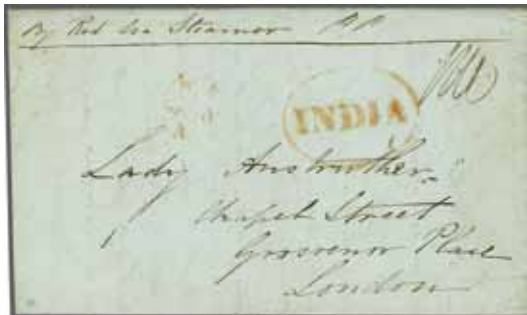 By Red Sea Steamer P P
INDIA
Lady Anstruther
Chapel Street
Grosvenor Place
London